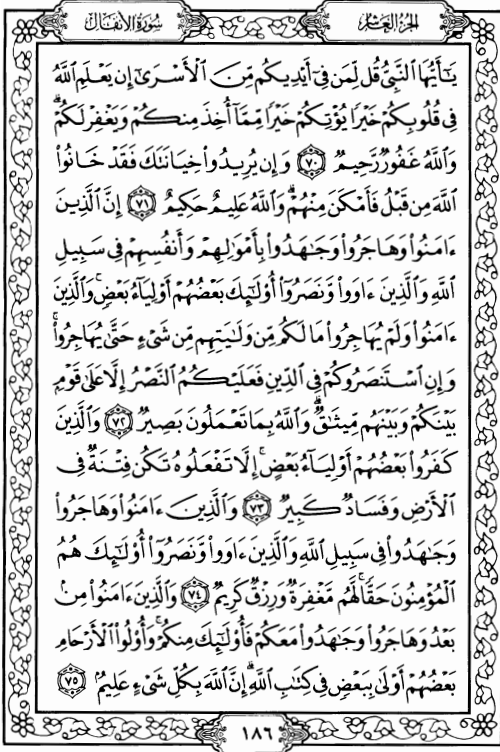 سُورَةُ الأَنفَال
الجُزءُ العَاشِرُ
يَٰٓأَيُّهَا ٱلنَّبِىُّ قُل لِّمَن فِىٓ أَيْدِيكُم مِّنَ ٱلْأَسْرَىٰٓ إِن يَعْلَمِ ٱللَّهُ
فِى قُلُوبِكُمْ خَيْرًا يُؤْتِكُمْ خَيْرًا مِّمَّآ أُخِذَ مِنكُمْ وَيَغْفِرْ لَكُمْ ۗ
وَٱللَّهُ غَفُورٌ رَّحِيمٌ ٧٠ وَإِن يُرِيدُوا۟ خِيَانَتَكَ فَقَدْ خَانُوا۟
ٱللَّهَ مِن قَبْلُ فَأَمْكَنَ مِنْهُمْ ۗ وَٱللَّهُ عَلِيمٌ حَكِيمٌ ٧١ إِنَّ ٱلَّذِينَ
ءَامَنُوا۟ وَهَاجَرُوا۟ وَجَٰهَدُوا۟ بِأَمْوَٰلِهِمْ وَأَنفُسِهِمْ فِى سَبِيلِ
ٱللَّهِ وَٱلَّذِينَ ءَاوَوا۟ وَّنَصَرُوٓا۟ أُو۟لَٰٓئِكَ بَعْضُهُمْ أَوْلِيَآءُ بَعْضٍ ۚ وَٱلَّذِينَ
ءَامَنُوا۟ وَلَمْ يُهَاجِرُوا۟ مَا لَكُم مِّن وَلَٰيَتِهِم مِّن شَىْءٍ حَتَّىٰ يُهَاجِرُوا۟ ۚ
وَإِنِ ٱسْتَنصَرُوكُمْ فِى ٱلدِّينِ فَعَلَيْكُمُ ٱلنَّصْرُ إِلَّا عَلَىٰ قَوْمٍۭ
بَيْنَكُمْ وَبَيْنَهُم مِّيثَٰقٌ ۗ وَٱللَّهُ بِمَا تَعْمَلُونَ بَصِيرٌ ٧٢ وَٱلَّذِينَ
كَفَرُوا۟ بَعْضُهُمْ أَوْلِيَآءُ بَعْضٍ ۚ إِلَّا تَفْعَلُوهُ تَكُن فِتْنَةٌ فِى
ٱلْأَرْضِ وَفَسَادٌ كَبِيرٌ ٧٣ وَٱلَّذِينَ ءَامَنُوا۟ وَهَاجَرُوا۟
وَجَٰهَدُوا۟ فِى سَبِيلِ ٱللَّهِ وَٱلَّذِينَ ءَاوَوا۟ وَّنَصَرُوٓا۟ أُو۟لَٰٓئِكَ هُمُ
ٱلْمُؤْمِنُونَ حَقًّا ۚ لَّهُم مَّغْفِرَةٌ وَرِزْقٌ كَرِيمٌ ٧٤ وَٱلَّذِينَ ءَامَنُوا۟ مِنۢ
بَعْدُ وَهَاجَرُوا۟ وَجَٰهَدُوا۟ مَعَكُمْ فَأُو۟لَٰٓئِكَ مِنكُمْ ۚ وَأُو۟لُوا۟ ٱلْأَرْحَامِ
بَعْضُهُمْ أَوْلَىٰ بِبَعْضٍ فِى كِتَٰبِ ٱللَّهِ ۗ إِنَّ ٱللَّهَ بِكُلِّ شَىْءٍ عَلِيمٌۢ ٧٥
١٨٦